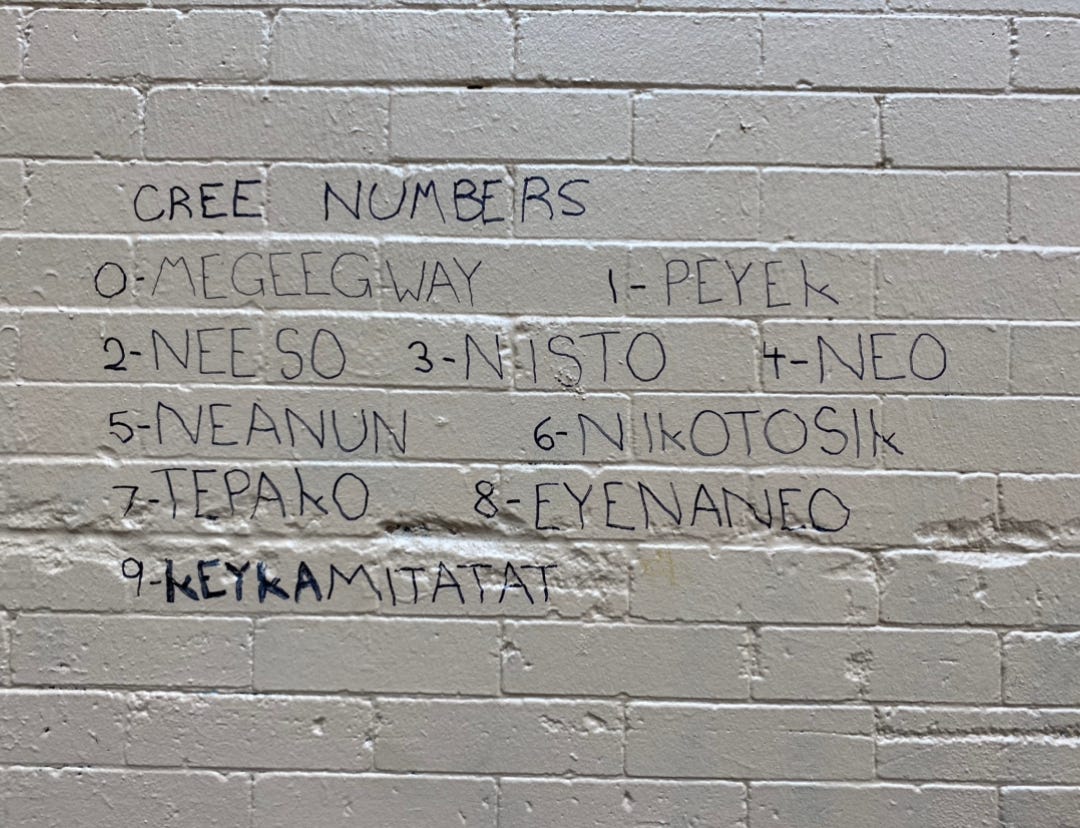 CREE NUMBERS
0-MEGEEGWAY 1-PEYEK
2-NEESO 3-NISTO 4-NEO
5-NEANUN 6-NIKOTOSIK
7-TEPAKO 8-EYENANEO
9-KEYKAMITATAT